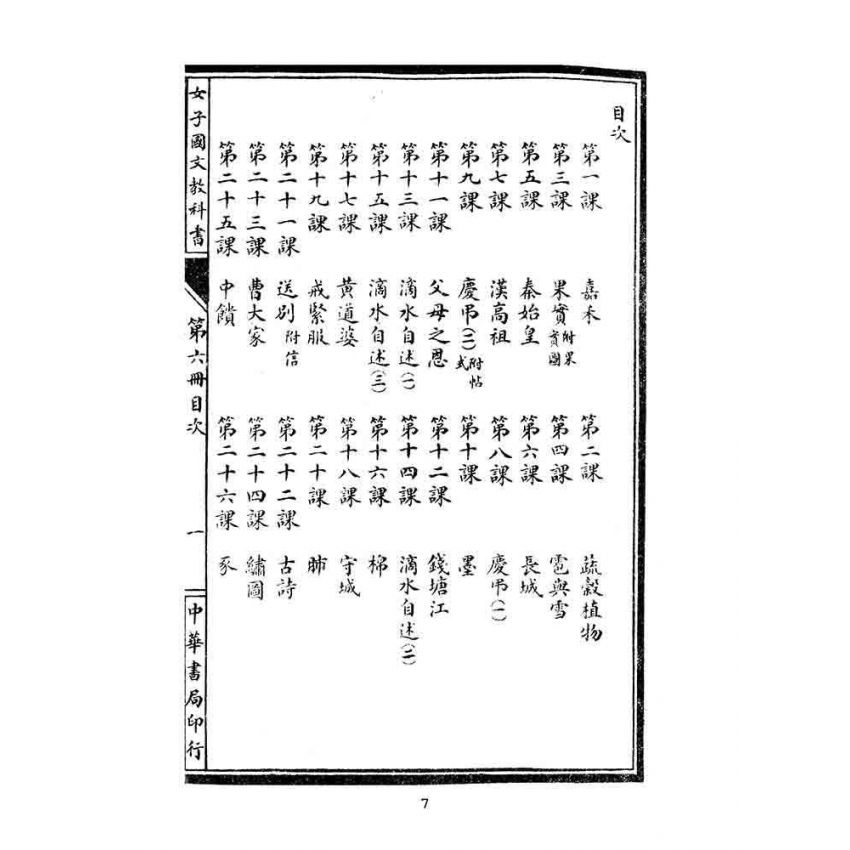 目次
第一課 嘉禾 第二課 蔬穀植物
第三課 果實附果實圖 第四課 雹與雪
第五課 秦始皇 第六課 長城
第七課 漢高祖 第八課 慶弔(一)
第九課 慶弔(二)附帖式 第十課 墨
第十一課 父母之恩 第十二課 錢塘江
第十三課 滴水自述(一) 第十四課 滴水自述(二)
第十五課 滴水自述(三) 第十六課 棉
第十七課 黄道婆 第十八課 守城
第十九課 戒緊服 第二十課 肺
第二十一課 送別附信 第二十二課 古詩
第二十三課 曹大家 第二十四課 繡圖
第二十五課 中饋 第二十六課 豕
女子國文教科書 第六冊目次 一 中華書局印行
7